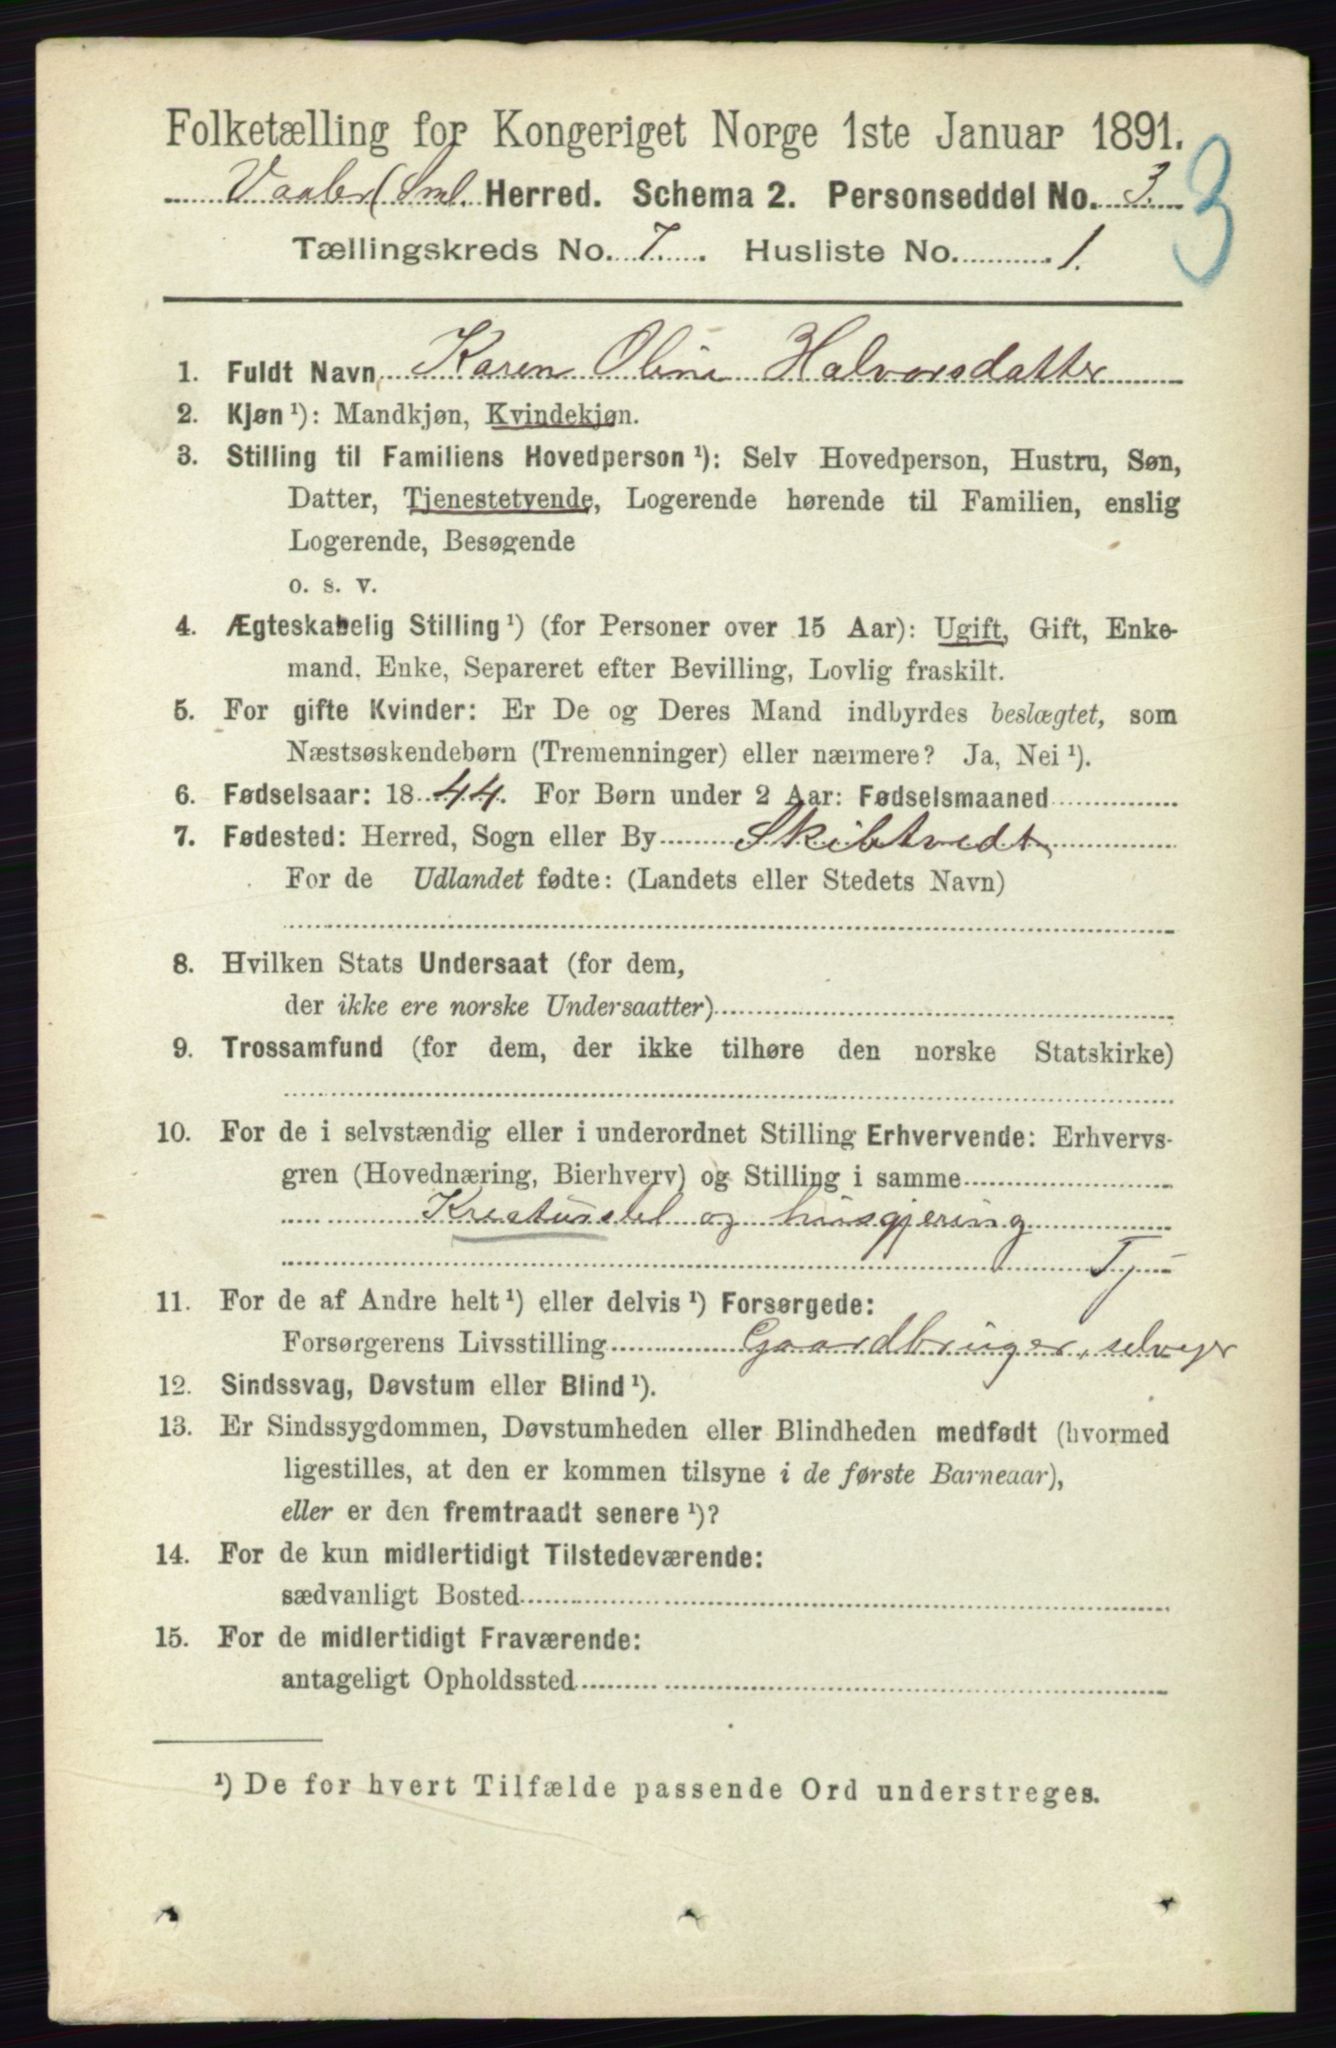 Folketælling for Kongeriget Norge 1ste Januar 1891.
3
Vaaler (Sml. Herred. Schema 2. Personseddel No. 3.
Tællingskreds No. 7. Husliste No. 1.
1. Fuldt Navn Karen Oline Halvorsdatter
2. Kjøn ¹): Mandkjøn, Kvindekjøn.
3. Stilling til Familiens Hovedperson ¹): Selv Hovedperson, Hustru, Søn,
Datter, Tjenestetyende, Logerende hørende til Familien, enslig
Logerende, Besøgende
o. s. v.
4. Ægteskabelig Stilling ¹) (for Personer over 15 Aar): Ugift, Gift, Enke-
mand, Enke, Separeret efter Bevilling, Lovlig fraskilt.
5. For gifte Kvinder: Er De og Deres Mand indbyrdes beslægtet, som
Næstsøskendebørn (Tremenninger) eller nærmere? Ja, Nei ¹).
6. Fødselsaar: 1844. For Børn under 2 Aar: Fødselsmaaned
7. Fødested: Herred, Sogn eller By Skibtvedt
For de Udlandet fødte: (Landets eller Stedets Navn)
8. Hvilken Stats Undersaat (for dem,
der ikke ere norske Undersaatter)
9. Trossamfund (for dem, der ikke tilhøre den norske Statskirke)
10. For de i selvstændig eller i underordnet Stilling Erhvervende: Erhvervs-
gren (Hovednæring, Bierhverv) og Stilling i samme
Kreaturstel og husgjering
Tj
11. For de af Andre helt ¹) eller delvis ¹) Forsørgede:
Forsørgerens Livsstilling Gaardbruger, selvejer
12. Sindssvag, Døvstum eller Blind ¹).
13. Er Sindssygdommen, Døvstumheden eller Blindheden medfødt (hvormed
ligestilles, at den er kommen tilsyne i de første Barneaar),
eller er den fremtraadt senere ¹)?
14. For de kun midlertidigt Tilstedeværende:
sædvanligt Bosted
15. For de midlertidigt Fraværende:
antageligt Opholdssted
¹) De for hvert Tilfælde passende Ord understreges.